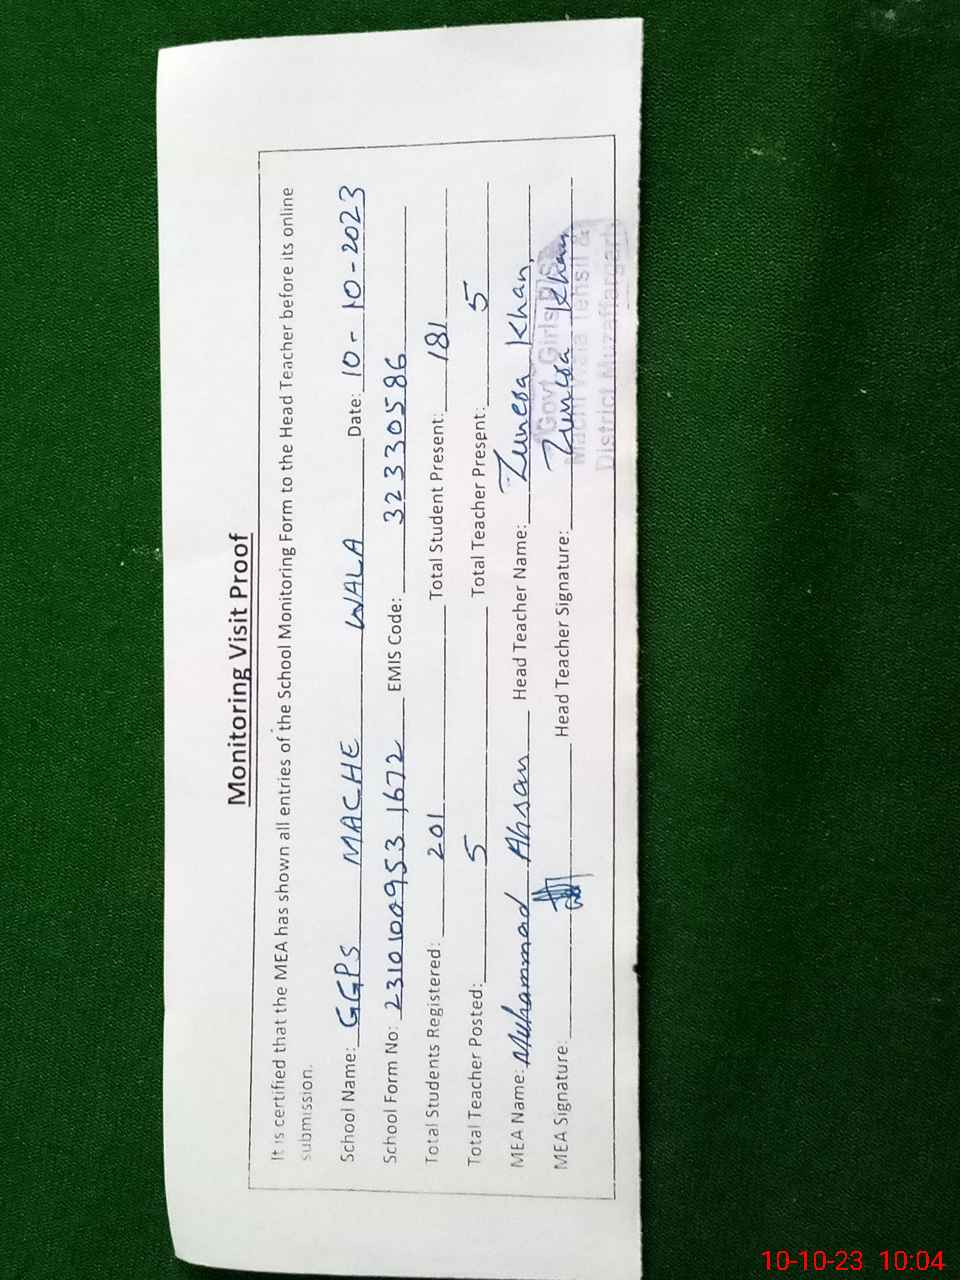 Monitoring Visit Proof
It is certified that the MEA has shown all entries of the School Monitoring Form to the Head Teacher before its online
submission.
School Name: GGPS MACHE WALA Date: 10-10-2023
School Form No: 2310100953 1672 EMIS Code: 32330586
Total Students Registered: 201 Total Student Present: 181
Total Teacher Posted: 5 Total Teacher Present: 5
MEA Name: Muhammad Ahsan Head Teacher Name: Zunera Khan
MEA Signature: Head Teacher Signature: Zunera Khan
Govt. Girls P/S
Machi Wala Tehsil &
District Muzaffargarh
10-10-23 10:04